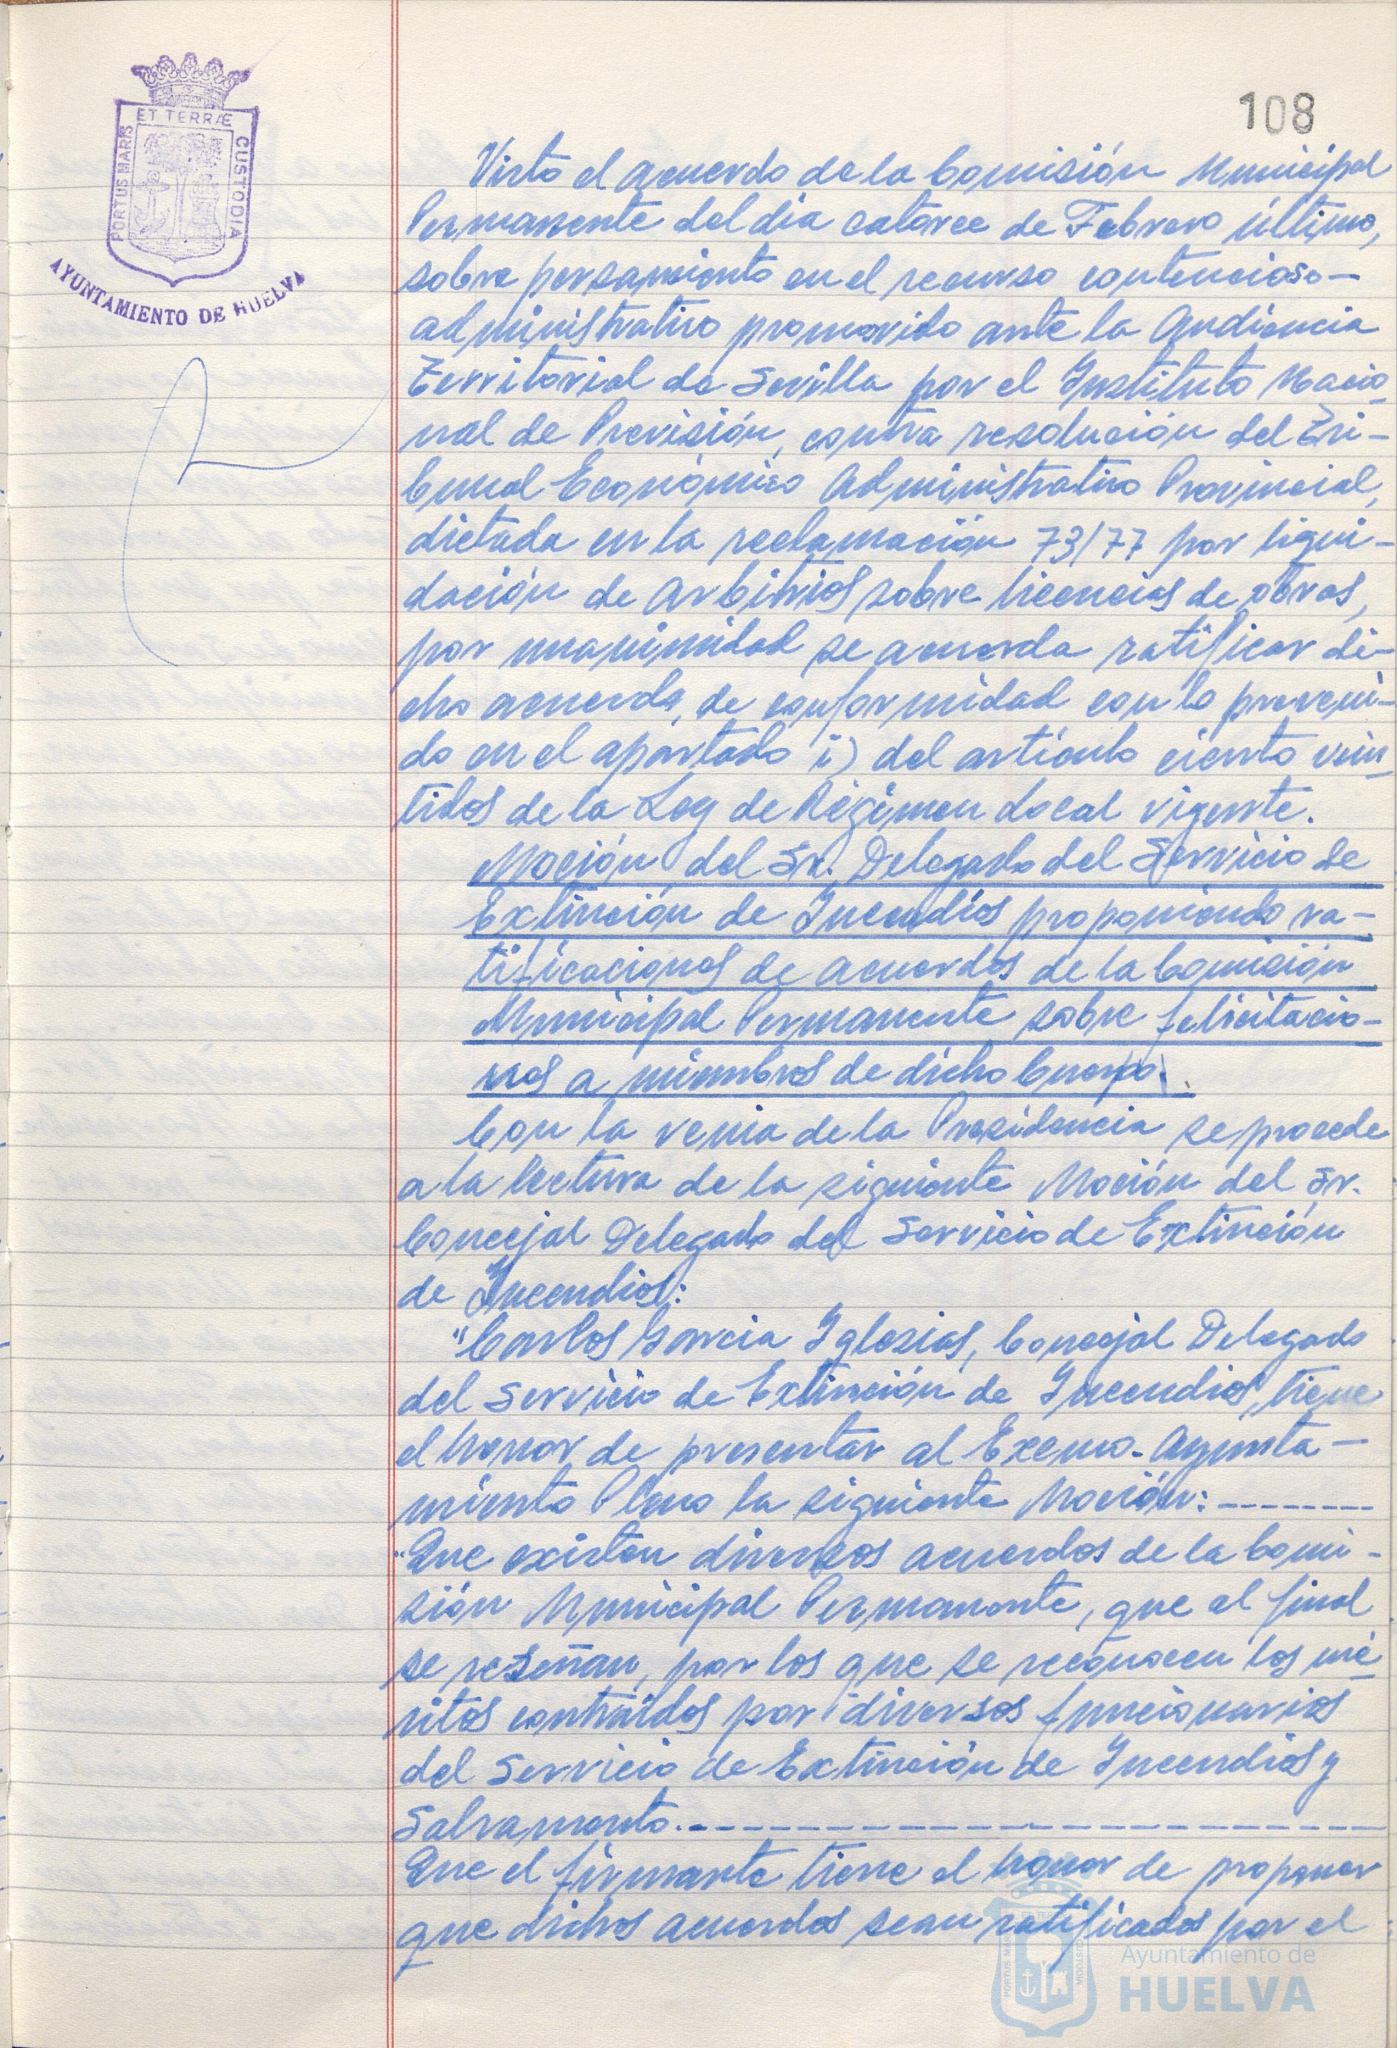 108
ET TERRÆ
PORTUS MARIS
CUSTODIA
AYUNTAMIENTO DE HUELVA
Visto el acuerdo de la Comisión Municipal
Permanente del día catorce de Febrero último,
sobre personamiento en el recurso contencioso-
administrativo promovido ante la Audiencia
Territorial de Sevilla por el Instituto Nacio-
nal de Previsión, contra resolución del Tri-
bunal Económico Administrativo Provincial,
dictada en la reclamación 73/77 por liqui-
dación de arbitrios sobre licencias de obras,
por unanimidad se acuerda ratificar di-
cho acuerdo, de conformidad con lo preveni-
do en el apartado i) del artículo ciento vein-
tidos de la Ley de Régimen Local vigente.
Moción del Sr. Delegado del Servicio de
Extinción de Incendios proponiendo ra-
tificaciones de acuerdos de la Comisión
Municipal Permanente sobre felicitacio-
nes a miembros de dicho Cuerpo.
Con la venia de la Presidencia se procede
a la lectura de la siguiente Moción del Sr.
Concejal Delegado del Servicio de Extinción
de Incendios:
"Carlos García Iglesias, Concejal Delegado
del Servicio de Extinción de Incendios, tiene
el honor de presentar al Excmo. Ayunta-
miento Pleno la siguiente Moción:--------
"Que existen diversos acuerdos de la Comi-
sión Municipal Permanente, que al final
se reseñan, por los que se reconocen los mé-
ritos contraídos por diversos funcionarios
del Servicio de Extinción de Incendios y
Salvamento.----------------------
Que el firmante tiene el honor de proponer
que dichos acuerdos sean ratificados por el
Ayuntamiento de
HUELVA